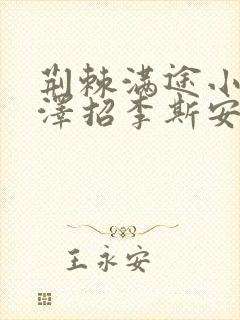 荆棘满途小
泽招李斯安
王永安